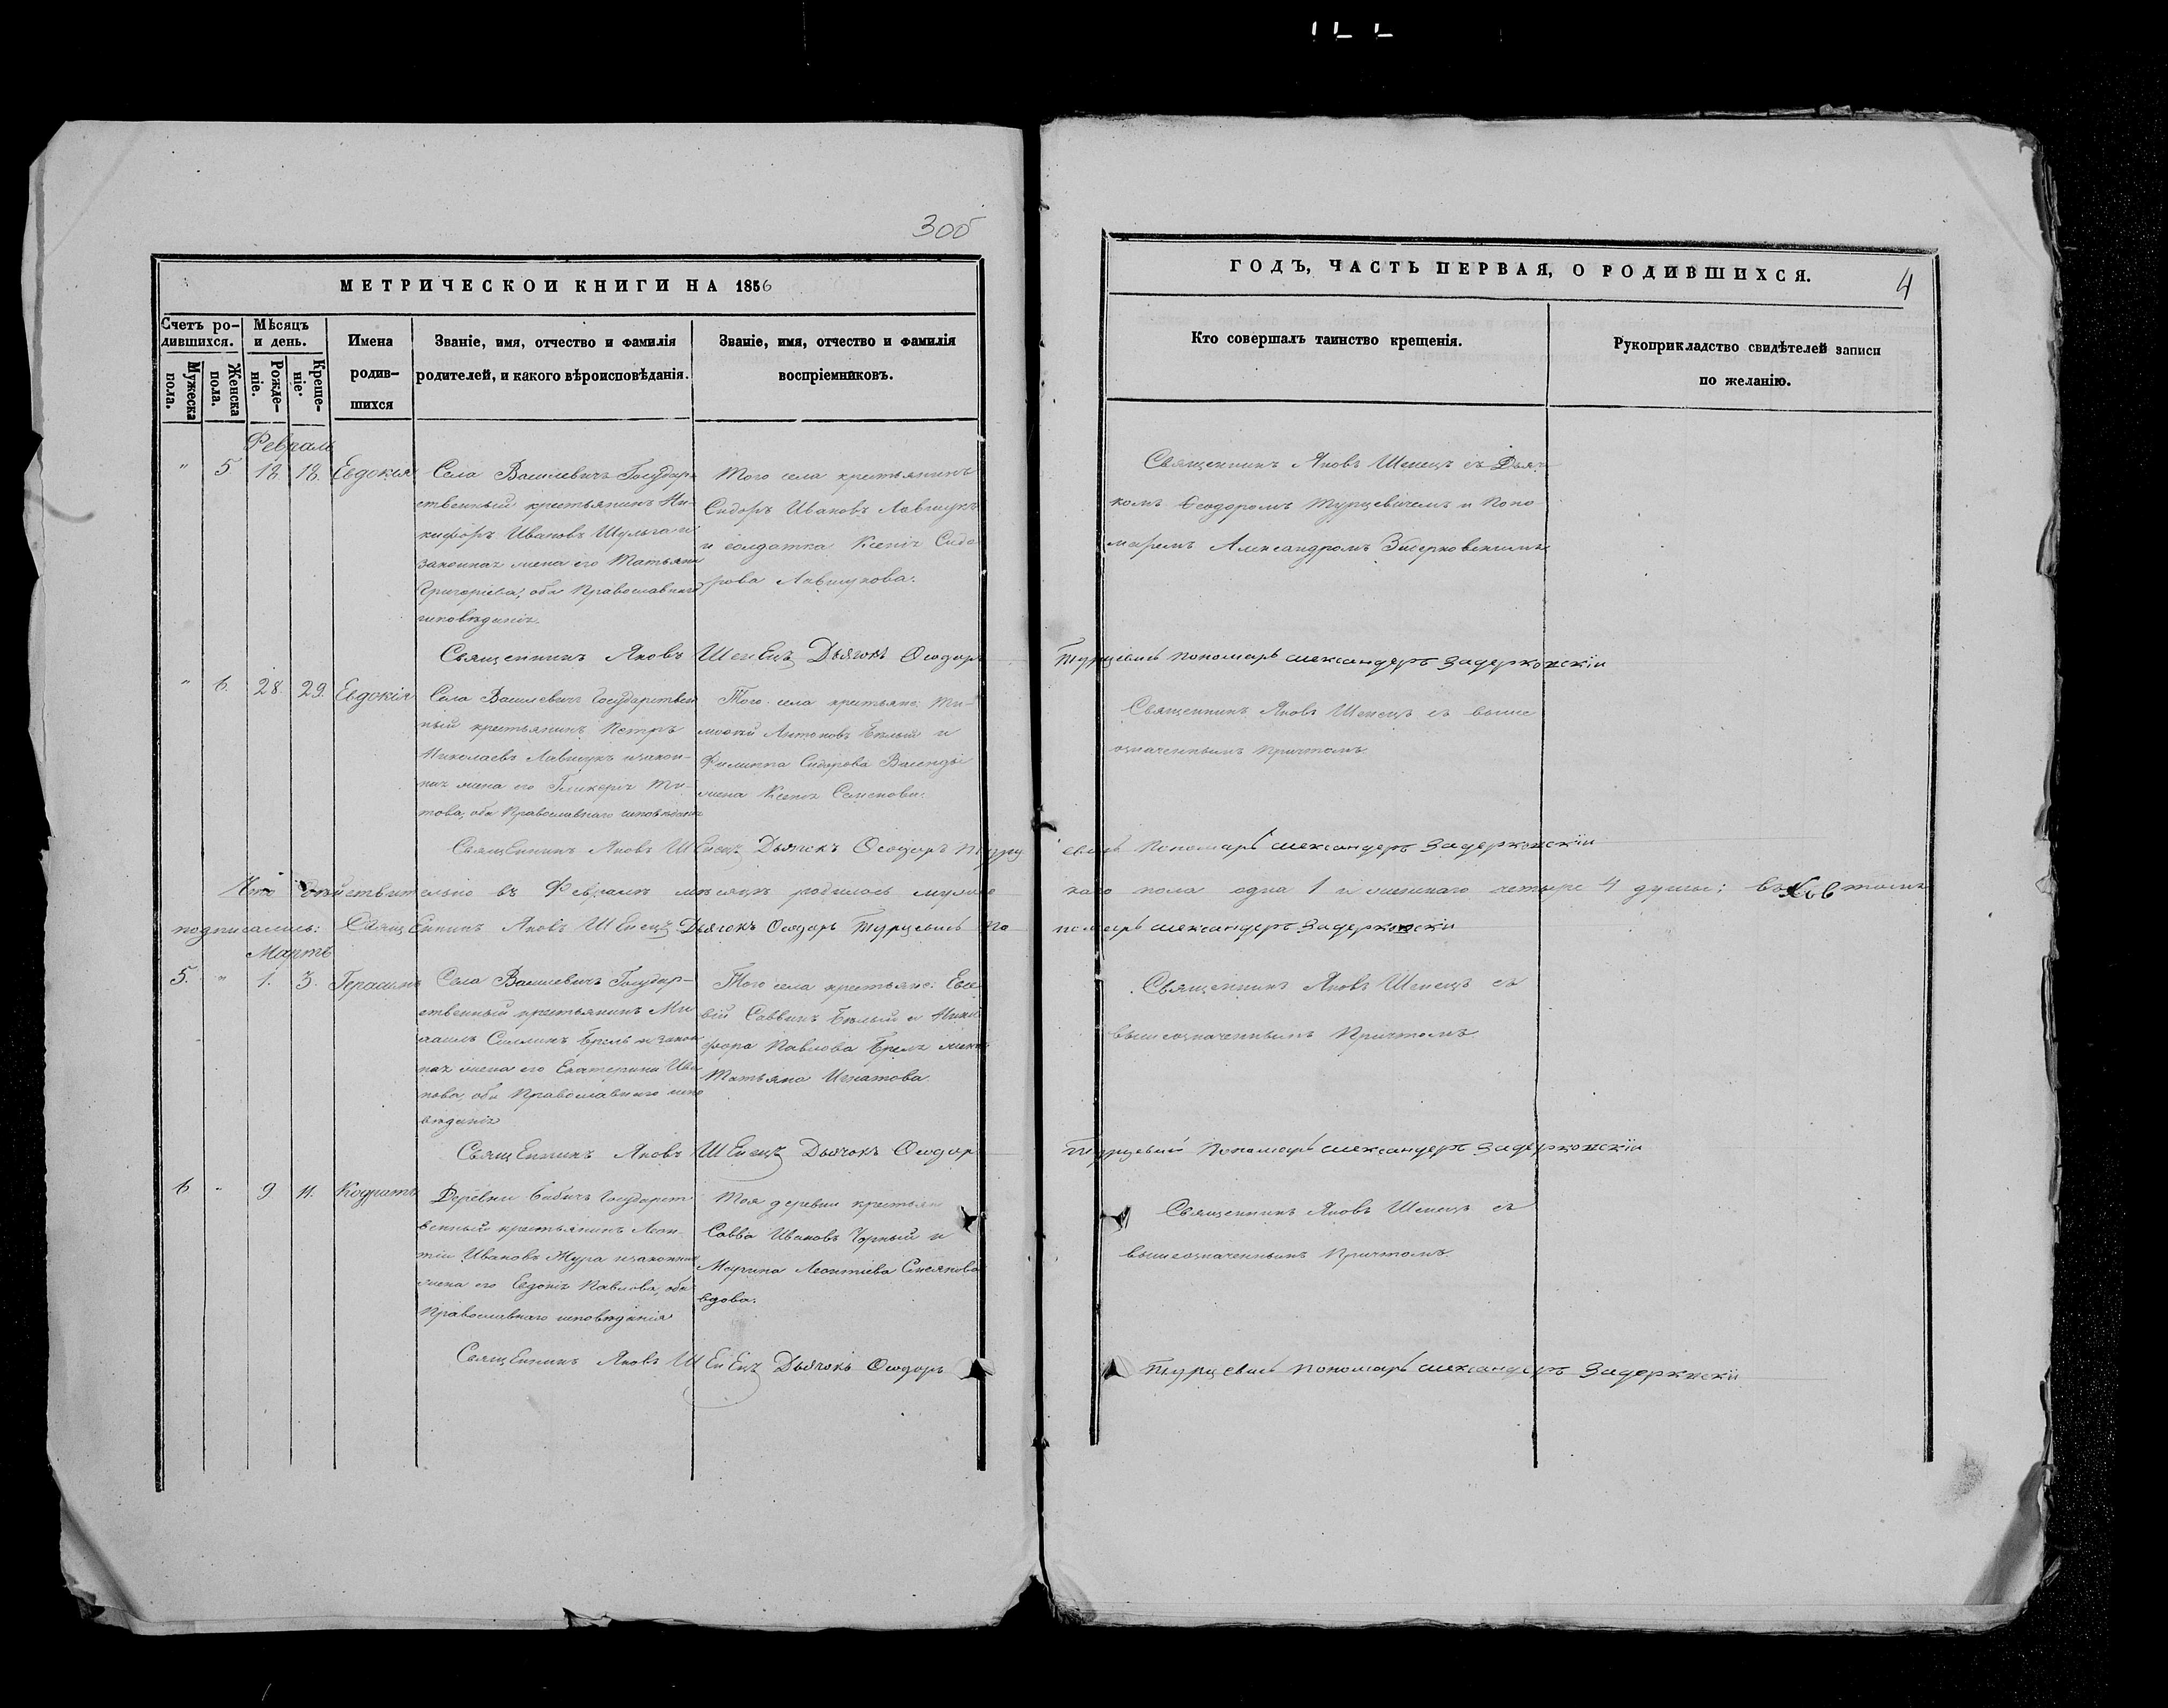 300
МЕТРИЧЕСКОЙ КНИГИ НА 1856
Счетъ ро-
дившихся.
Мужеска
пола.
Женска
пола.
Мѣсяцъ
и день.
Рожде-
ніе.
Креще-
ніе.
Имена
родив-
шихся
Званіе, имя, отчество и фамилія
родителей, и какого вѣроисповѣданія.
Званіе, имя, отчество и фамилія
воспріемниковъ.
ГОДЪ, ЧАСТЬ ПЕРВАЯ, О РОДИВШИХСЯ.
4
Кто совершалъ таинство крещенія.
Рукоприкладство свидѣтелей записи
по желанію.
Февраль
" 5 18. 18. Евдокия
Села Василевичъ Государ-
ственный крестьянинъ Ни-
кифоръ Ивановъ Шульга и
законная жена его Татьяна
Григоріева, оба Православнаго
исповѣданія.
Того села крестьянинъ
Сидоръ Ивановъ Лавшукъ
и солдатка Ксенія Сидо
рова Лавшукова.
Священникъ Яковъ Шепецъ съ Дьяч-
комъ Ѳеодоромъ Турцевичемъ и Поно
маремъ Александромъ Задерковскимъ
Священникъ Яковъ Шепецъ Дьячокъ Ѳеодоръ Турцевичь Пономарь Александеръ Задерковскіи
" 6. 28. 29. Евдокія
Села Василевичъ Государствен
ный крестьянинъ Петръ
Николаевъ Лавшукъ и закон-
ная жена его Гликерія Ти-
това, оба Православнаго исповѣданія
Того села крестьяне: Ти-
моѳей Антоновъ Бѣлый и
Филиппа Сидорова
жена Ксенія Семенова.
Священникъ Яковъ Шепецъ съ выше
означеннымъ Причтомъ
Священникъ Яковъ Шепецъ Дьячокъ Ѳеодоръ Турцевичь Пономарь Александеръ Задерковскіи
Что дѣйствительно въ Февралѣ мѣсяцѣ родилось мужес каго пола одна 1 и женскаго четыре 4 души; въ томъ
подписались: Священникъ Яковъ Шепецъ Дьячокъ Ѳеодоръ Турцевичь По номарь Александеръ Задерковскіи
Мартъ
5. " 1. 3. Герасимъ
Села Василевичъ Государ-
ственный крестьянинъ Ми
хаилъ Брель и закон
ная жена его Екатерина Ива
нова, оба Православнаго испо
вѣданія
Того села крестьяне: Евсе
вій Саввинъ Бѣлый и Ники
фора Павлова Бреля жена
Татьяна Игнатова
Священникъ Яковъ Шепецъ съ
вышеозначеннымъ Причтомъ
Священникъ Яковъ Шепецъ Дьячокъ Ѳеодоръ Турцевичь Пономарь Александеръ Задерковскіи
6 " 9 11. Кодратъ
Деревни Государст
венный крестьянинъ Леон
тій Ивановъ Жура и законная
жена его Евдокія Павлова, оба
Православнаго исповѣданія
Тоя деревни крестьяне
Савва Ивановъ Чорный и
Марина Леонтіева
вдова.
Священникъ Яковъ Шепецъ съ
вышеозначеннымъ Причтомъ.
Священникъ Яковъ Шепецъ Дьячокъ Ѳеодоръ Турцевичь Пономарь Александеръ Задеркоскіи